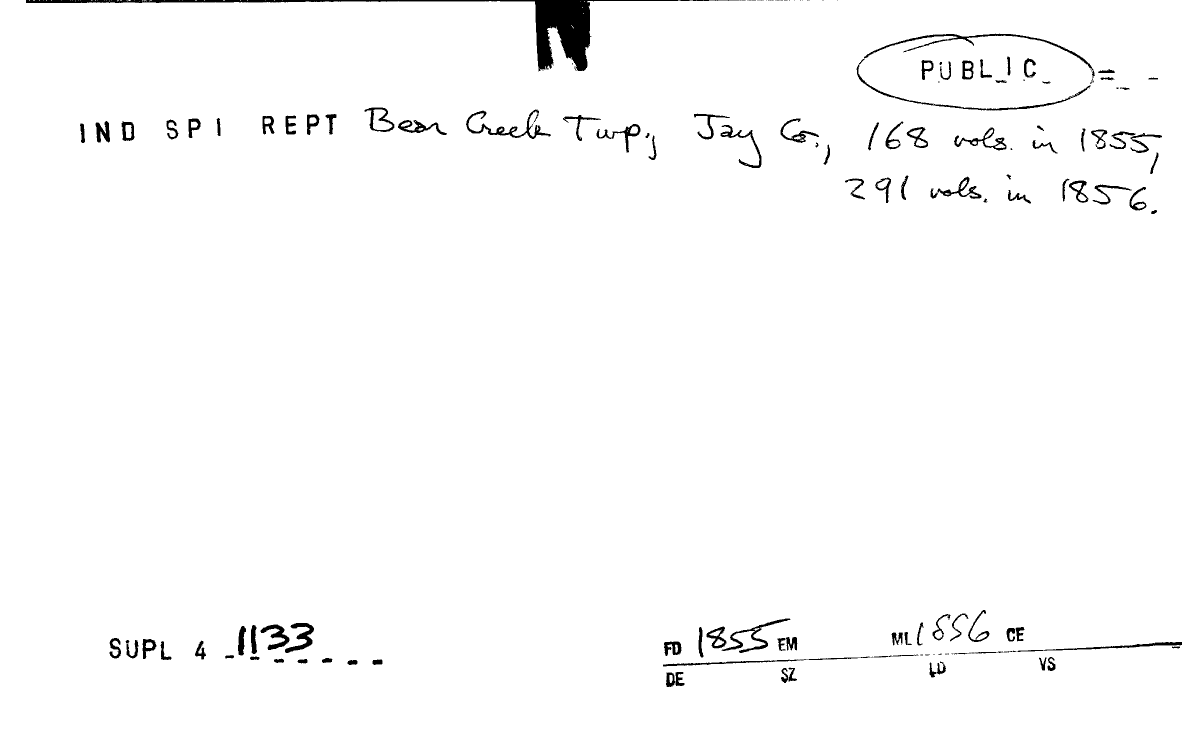 PUBLIC
IND SPI REPT Bear Creek Twp., Jay Co., 168 vols. in 1855,
291 vols. in 1856.
SUPL 4 1133
FD 1855 EM ML 1856 CE
DE SZ LD VS